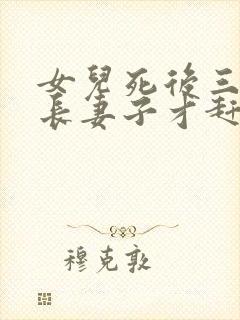 女兒死後三
長妻子才趕
穆克敦